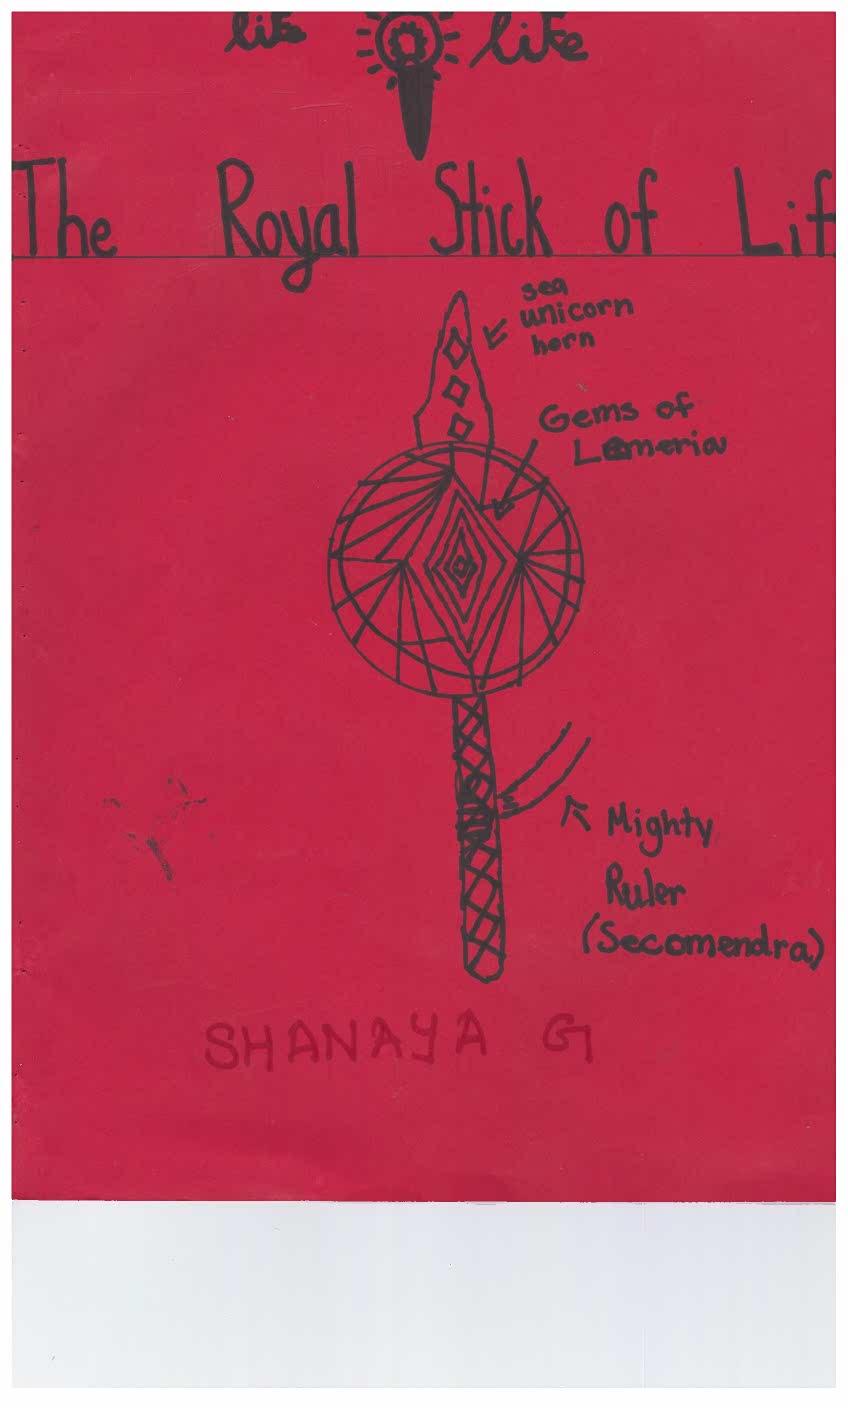 life life
The Royal Stick of Lif
sea
unicorn
horn
Gems of
Lemeria
Mighty
Ruler
(Secomendra)
SHANAYA G